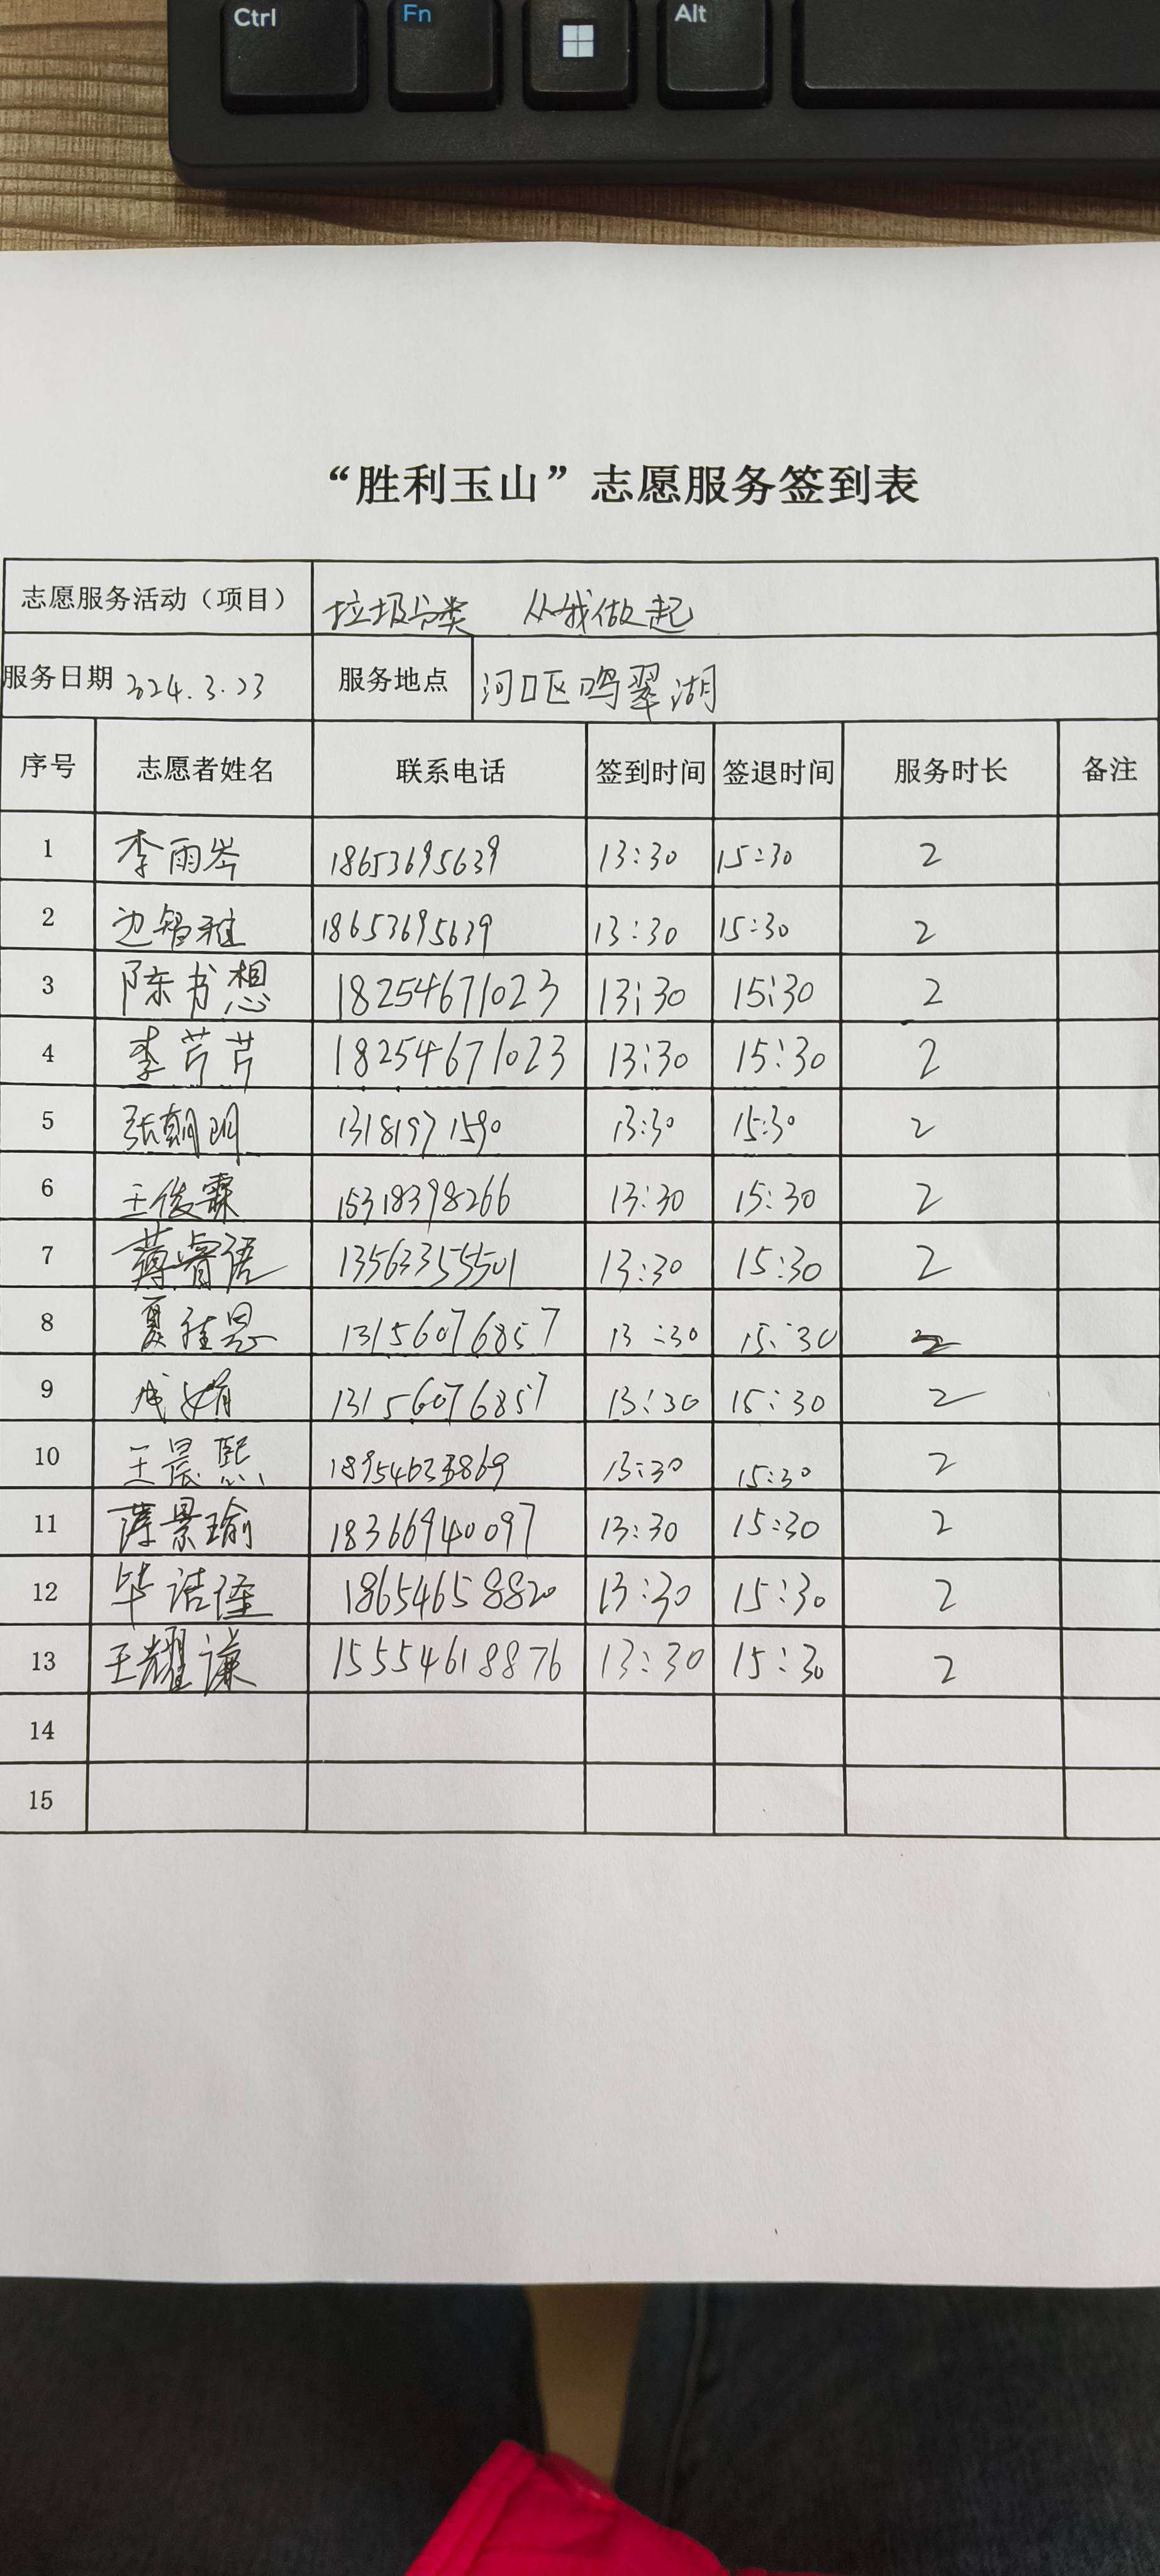 Ctrl Fn Alt
“胜利玉山”志愿服务签到表
志愿服务活动（项目） 垃圾分类 从我做起
服务日期 2024.3.23 服务地点 河口区鸣翠湖
序号 志愿者姓名 联系电话 签到时间 签退时间 服务时长 备注
1 李雨岑 18653695639 13:30 15:30 2
2 边智雅 18653695639 13:30 15:30 2
3 陈书想 18254671023 13:30 15:30 2
4 李芹芹 18254671023 13:30 15:30 2
5 张朝明 13181971590 13:30 15:30 2
6 王俊霖 15318398266 13:30 15:30 2
7 薄睿语 13563355501 13:30 15:30 2
8 夏佳昱 13156076857 13:30 15:30 2
9 成娟 13156076857 13:30 15:30 2
10 王晨熙 13:30 15:30 2
11 薛景瑜 18366940097 13:30 15:30 2
12 毕诘徑 18654658820 13:30 15:30 2
13 王耀谦 15554618876 13:30 15:30 2
14
15